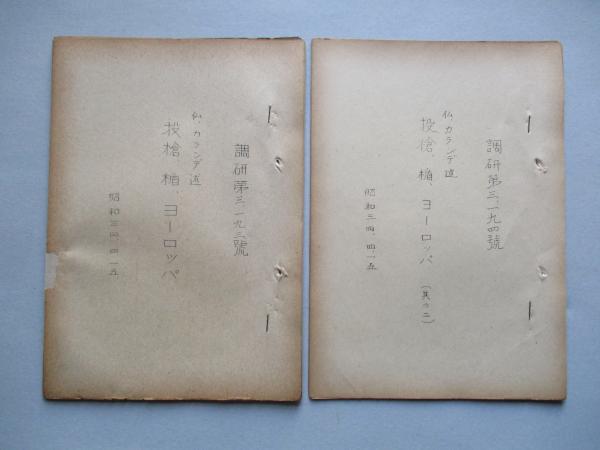 調研第三、一九三號
仏、カランデ述
投槍、楯、ヨーロッパ
昭和三四、四、一五
調研第三、一九四號
仏、カランデ述
投槍、楯、ヨーロッパ（其の二）
昭和三四、四、一五